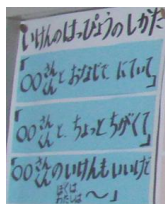 いけんのはっぴょうのしかた
「○○さんくんとおなじで にていて」
「○○さんくんと、ちょっとちがくて」
「○○さんくんのいけんもいいけど
ぼくは わたしは 〜」